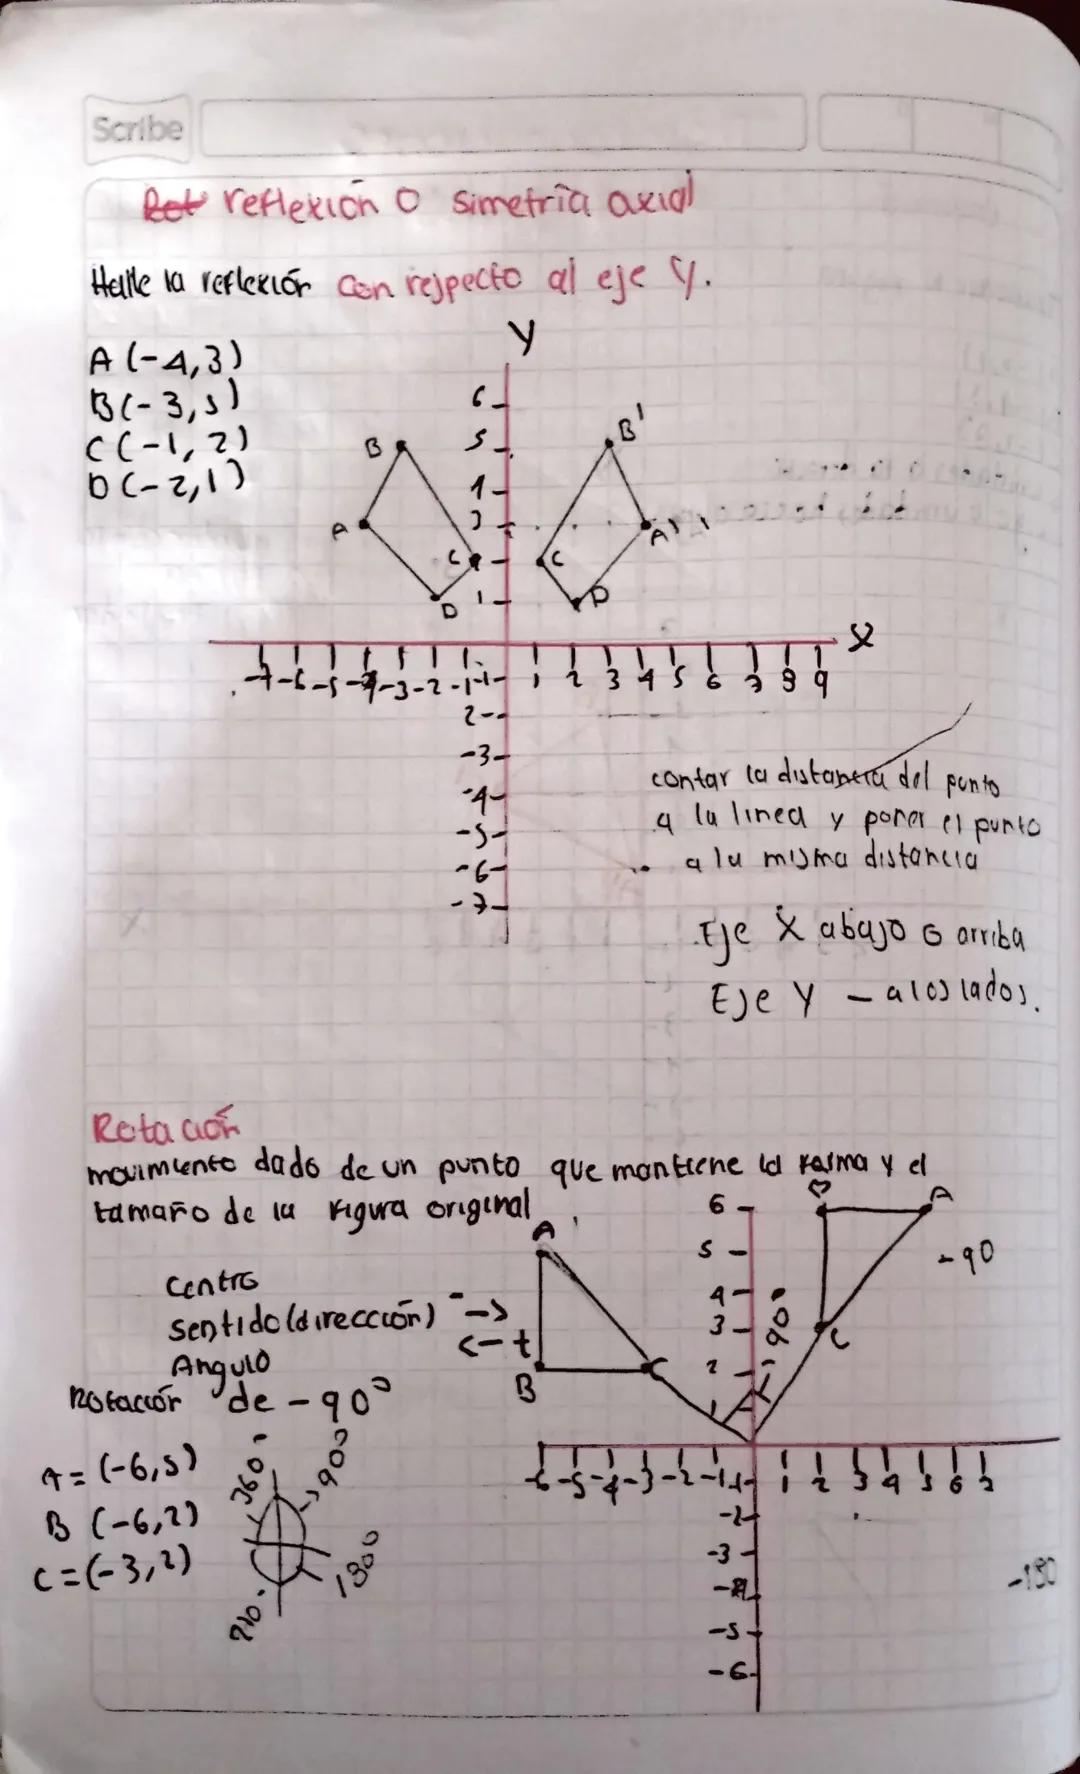 Scribe
Rot reflexión O simetria axial
Halle la reflexión con respecto al eje Y.
A (-4,3)
B(-3,5)
C(-1,2)
D(-2,1)
Y
6
5
4
3
1
B
A
C
D
B'
A'
C
D
X
-7 -6 -5 -4 -3 -2 -1 -1 1 2 3 4 5 6 7 8 9
2
-3
-4
-5
-6
-7
contar la distancia del punto
a la linea y poner el punto
a la misma distancia
Eje X abajo o arriba
Eje Y - a los lados.
Rotación
movimiento dado de un punto que mantiene la forma y el
tamaño de la figura original
Centro
sentido (dirección) - ->
<- +
Angulo
Rotación de -90°
A = (-6,5)
B (-6,2)
C = (-3,2)
360
90
180
A
B
C
6
5
4
3
2
1
90°
A
C
-90
-6 -5 -4 -3 -2 -1 -1 1 2 3 4 5 6 7
-2
-3
-4
-5
-6
-180